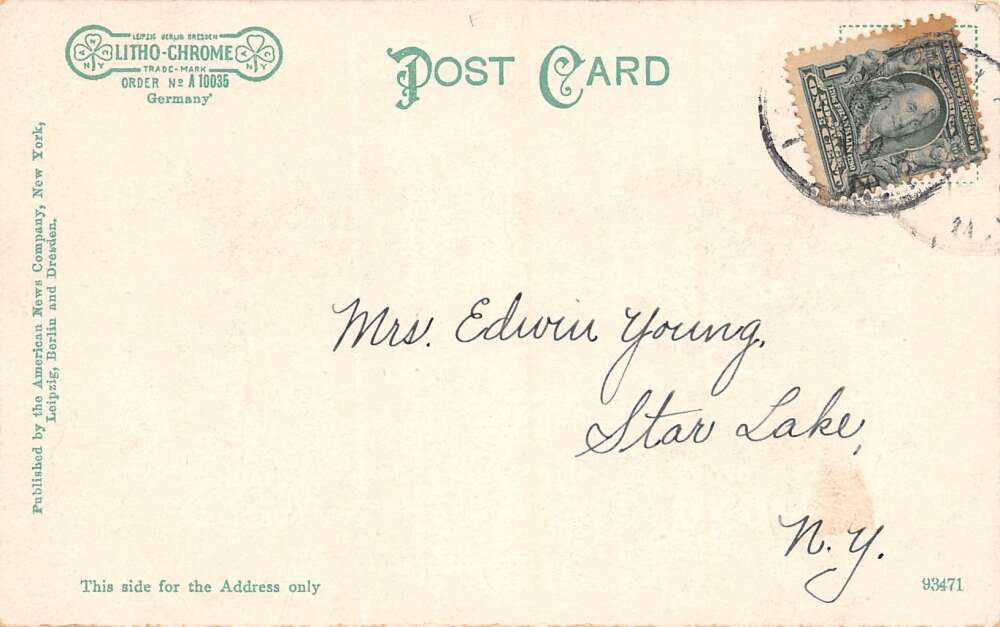 LEIPZIG BERLIN DRESDEN
LITHO-CHROME
TRADE-MARK
ORDER Nº A 10035
Germany
POST CARD
Published by the American News Company, New York,
Leipzig, Berlin and Dresden.
1
ONE CENT
Mrs. Edwin Young,
Star Lake,
N.Y.
This side for the Address only
93471